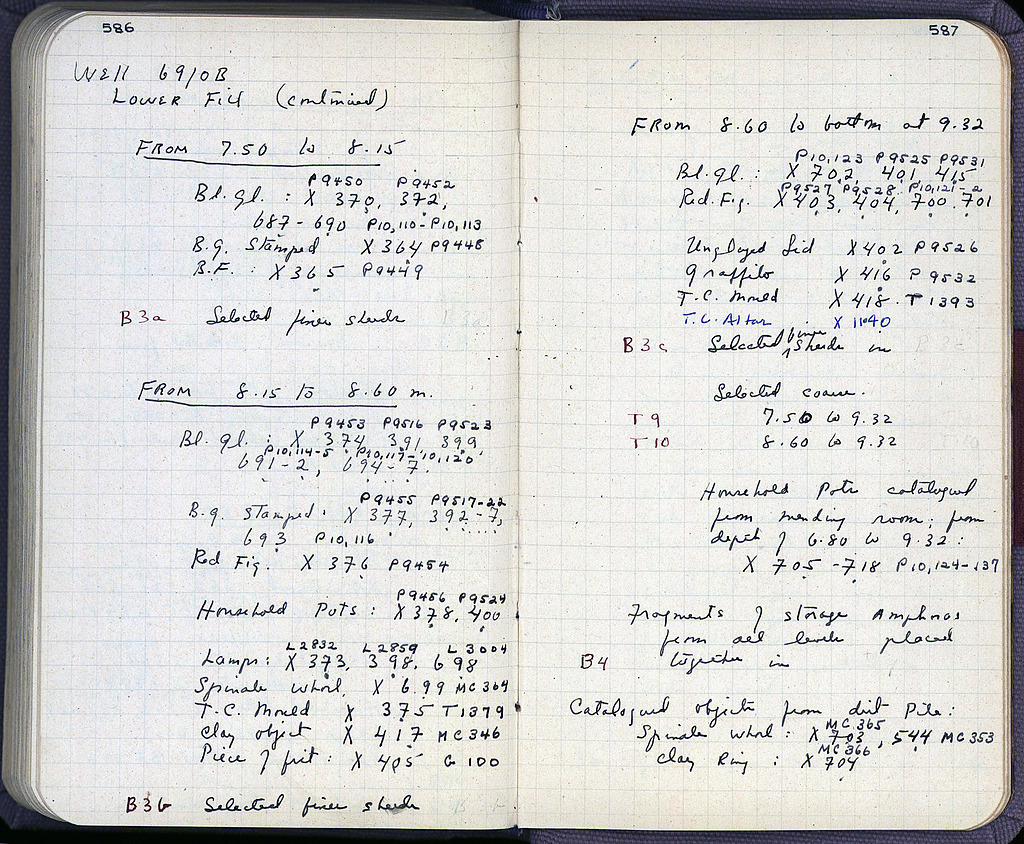 586
Well 69/0B
Lower Fill (continued)
From 7.50 to 8.15
P9450 P9452
Bl. gl. : X 370, 372,
687-690 P10,110-P10,113
B.g. Stamped X 364 P9448
B.F. : X 365 P9449
B3a Selected finer sherds
From 8.15 to 8.60 m.
P9453 P9516 P9523
Bl. gl. : X 374, 391, 399,
P10,114-5 P10,117-10,120
691-2, 694-7.
P9455 P9517-22
B.g. Stamped: X 377, 392-7,
693 P10,116
Red Fig. X 376 P9454
P9456 P9524
Household Pots : X 378, 400
L2832 L2859 L3004
Lamps: X 373, 398, 698
Spindle whorl, X 699 MC364
T.C. Mould X 375 T1379
Clay object X 417 MC346
Piece of frit: X 405 G100
B3b Selected finer sherds
587
From 8.60 to bottom at 9.32
P10,123 P9525 P9531
Bl. gl. : X 702, 401, 415
P9527 P9528 P10,121-2
Red. Fig. X 403, 404, 700, 701
Unglazed Lid X 402 P9526
Graffito X 416 P9532
T.C. Mould X 418. T1393
T.C. Altar X 1140
finer
B3c Selected sherds in
Selected coarse.
T9 7.50 to 9.32
T10 8.60 to 9.32
Household Pots catalogued
from mending room; from
depth of 6.80 to 9.32:
X 705-718 P10,124-137
Fragments of storage Amphoras
from all levels placed
B4 together in
Catalogued objects from dirt Pile:
MC365
Spindle whorl: X 703, 544 MC353
MC366
Clay Ring : X 704